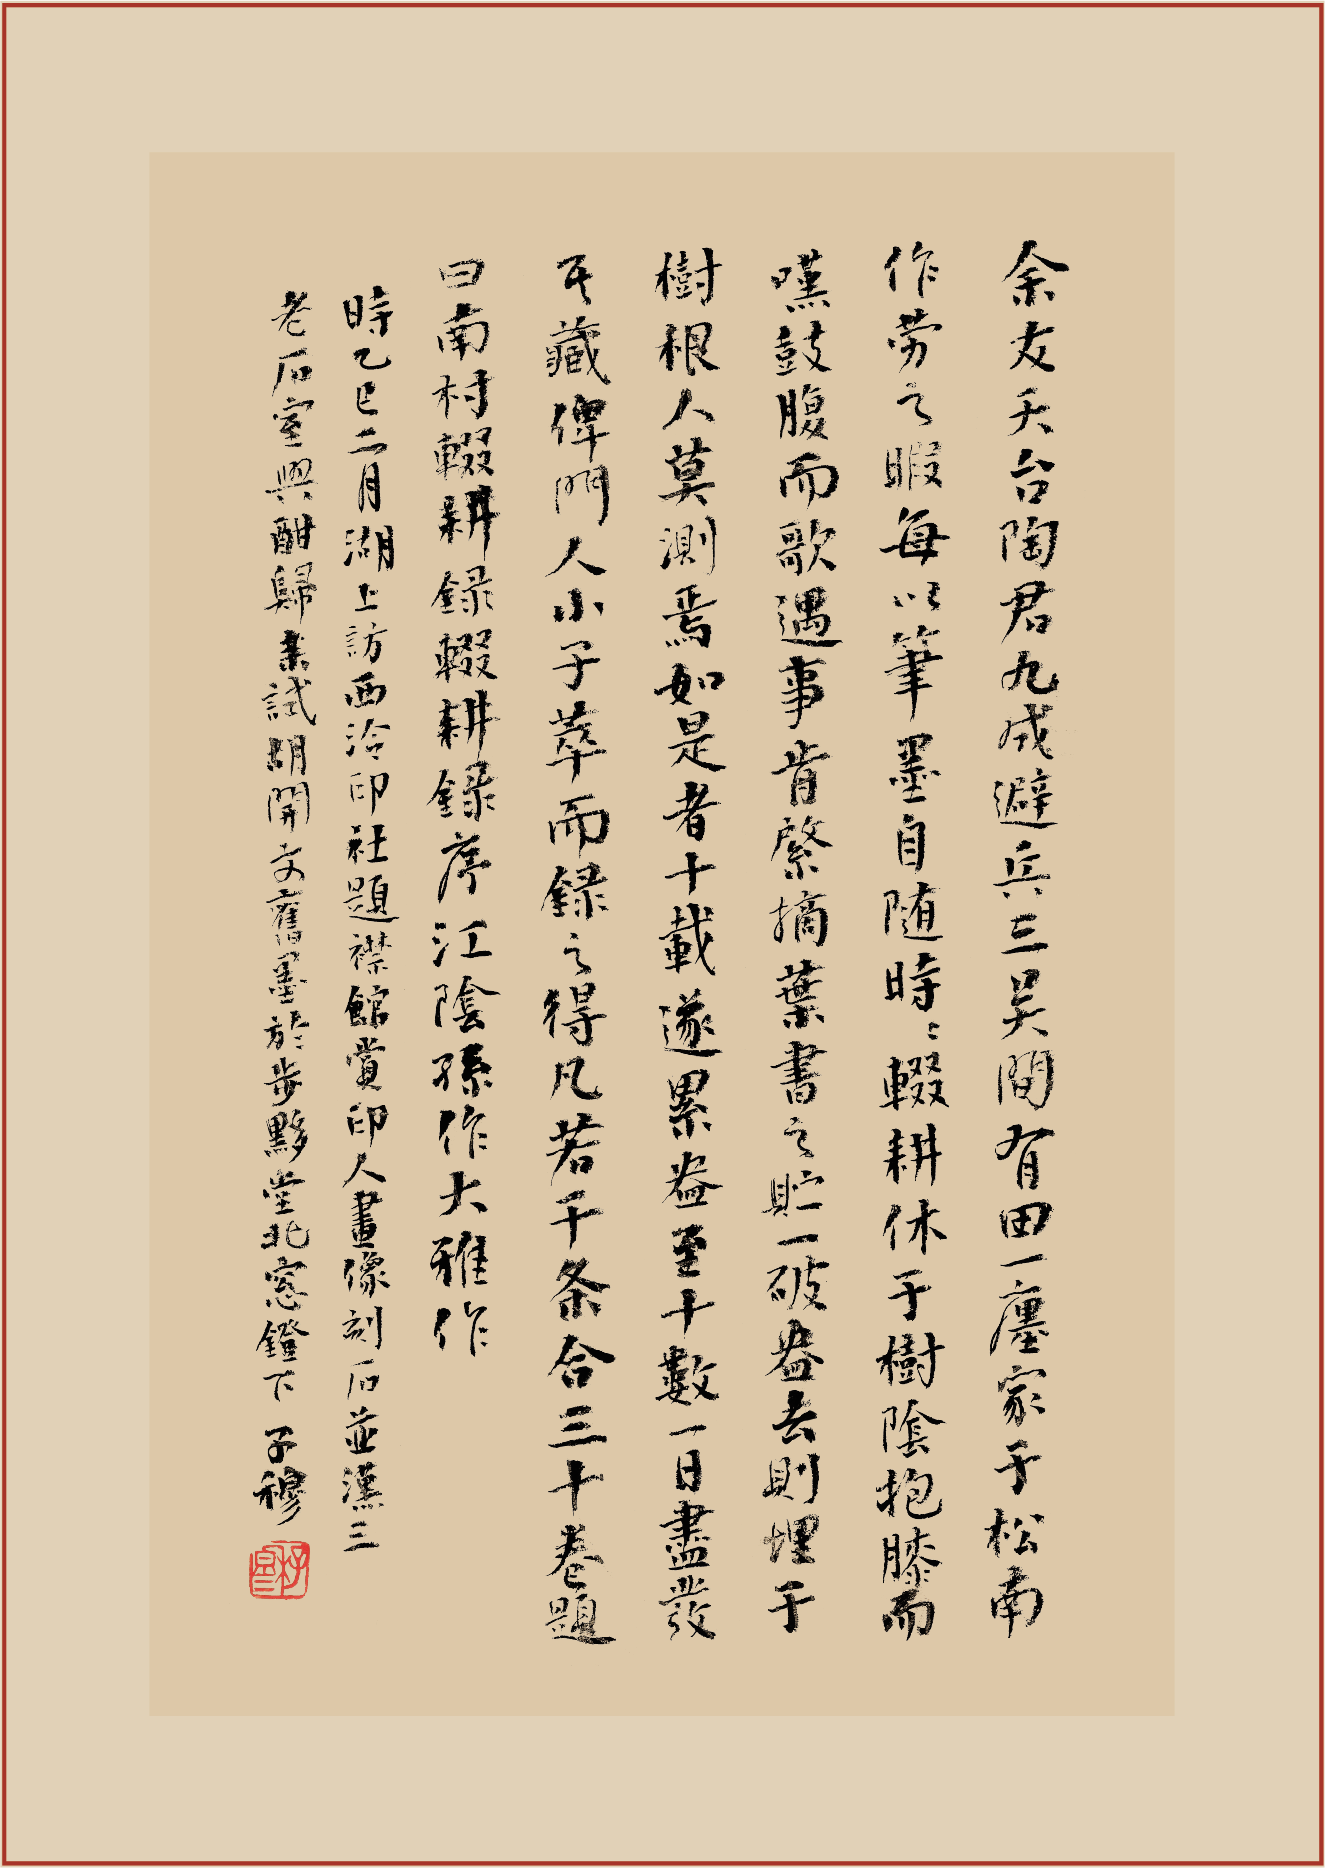 余友天台陶君九成避兵三吴間有田一廛家于松南
作劳之暇每以筆墨自随時〻輟耕休于樹陰抱膝而
嘆鼓腹而歌遇事肯綮摘葉書之貯一破盎去則埋于
樹根人莫測焉如是者十載遂累盎至十數一日盡發
其藏俾門人小子萃而録之得凡若干条合三十卷題
曰南村輟耕録輟耕録序江陰孫作大雅作
時乙巳二月湖上訪西泠印社題襟館賞印人畫像刻石並漢三
老石室興酣歸来試胡開文舊墨於步黟堂北窓鐙下 子穆